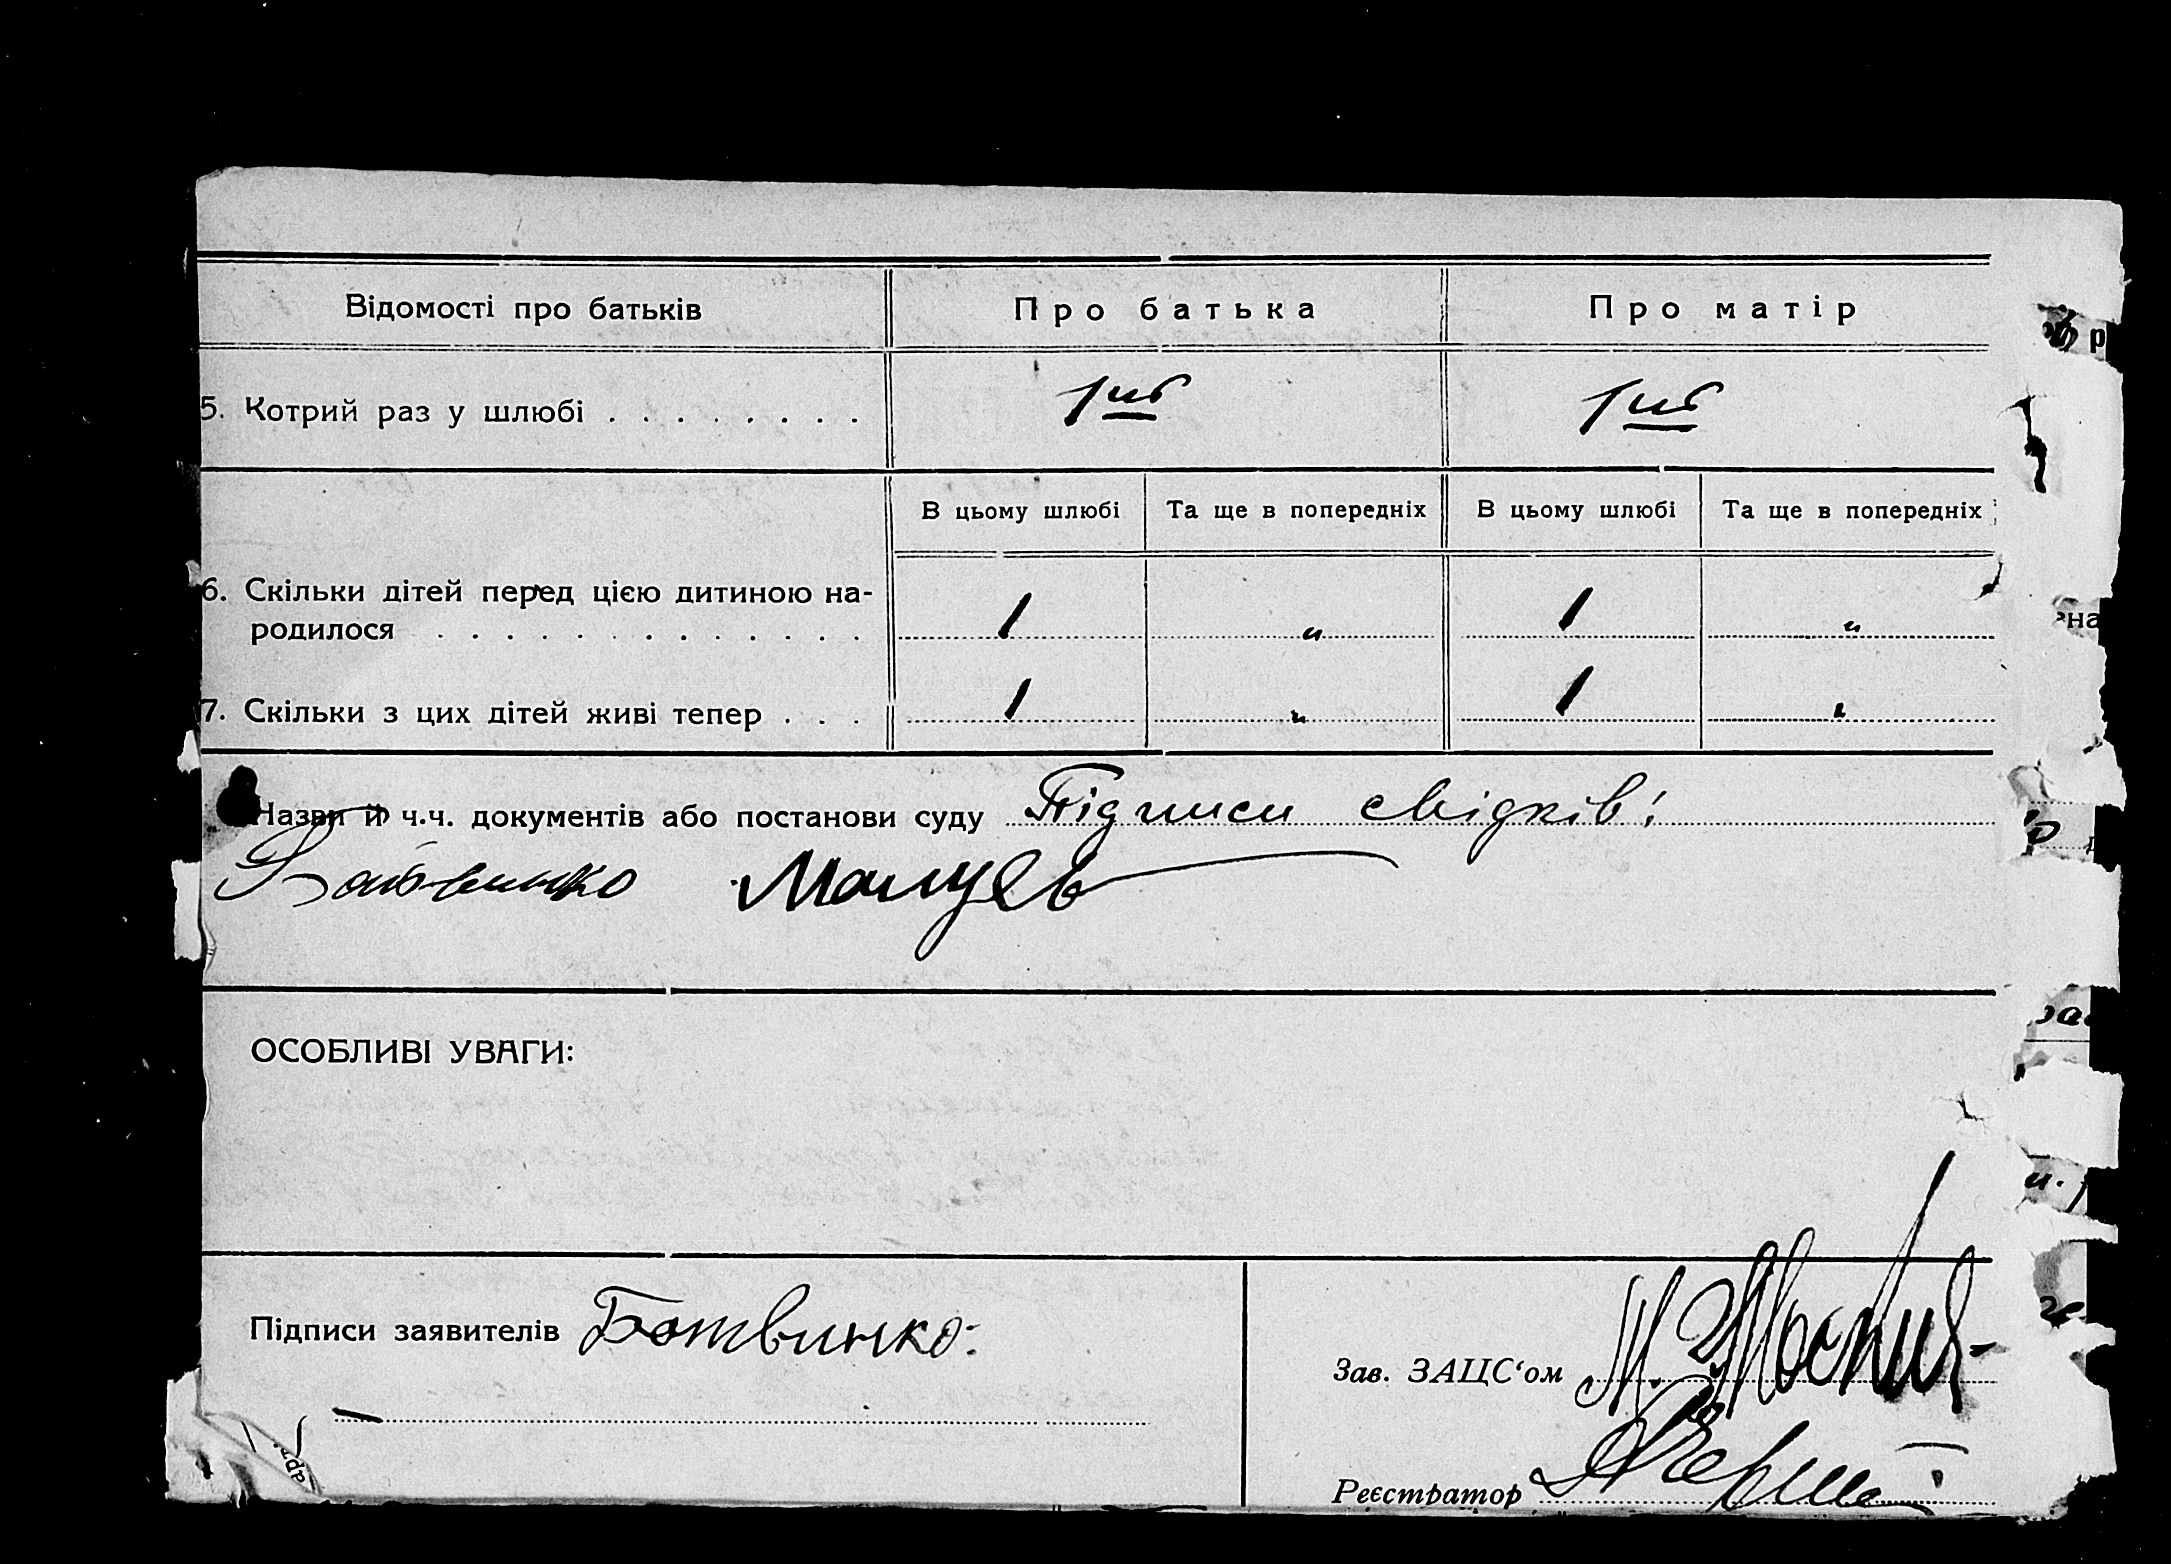 Відомості про батьків Про батька Про матір
5. Котрий раз у шлюбі . . . . . . . . 1ий 1ий
В цьому шлюбі Та ще в попередніх В цьому шлюбі Та ще в попередніх
6. Скільки дітей перед цією дитиною на-
родилося . . . . . . . . . . . . . 1 " 1 "
7. Скільки з цих дітей живі тепер . . . 1 " 1 "
Назви й ч.ч. документів або постанови суду Підписи свідків:
Ботвинко
ОСОБЛИВІ УВАГИ:
Підписи заявителів Ботвинко
Зав. ЗАЦС‘ом М.
Реєстратор